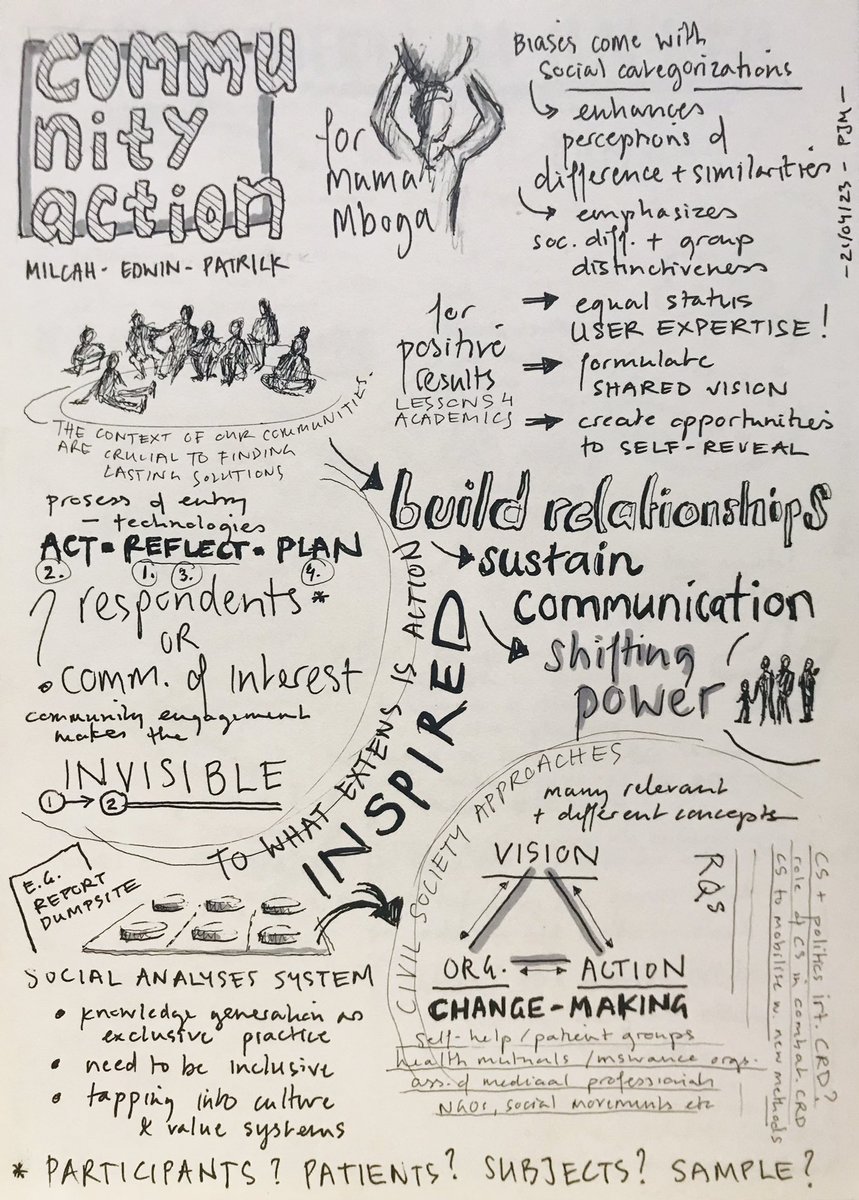 commu
nity
action
MILCAH - EDWIN - PATRICK
for
Mama
Mboga
Biases come with
social categorizations
enhances
perceptions of
difference + similarities
emphasizes
soc. diff. + group
distinctiveness
- 21/04/23 - PJM -
for
positive
results
LESSONS 4
ACADEMICS
⇒ equal status
USER EXPERTISE!
⇒ formulate
SHARED VISION
⇒ create opportunities
to SELF-REVEAL
THE CONTEXT OF OUR COMMUNITIES
ARE CRUCIAL TO FINDING
LASTING SOLUTIONS
build relationships
sustain
communication
shifting
power
prosess of entry
- technologies
ACT = REFLECT = PLAN
2. 1. 3. 4.
respondents *
OR
comm. of interest
community engagement
makes the
INVISIBLE
1 → 2
TO WHAT EXTENS IS ACTION
INSPIRED
E.G.
REPORT
DUMPSITE
SOCIAL ANALYSES SYSTEM
• knowledge generation as
exclusive practice
• need to be inclusive
• tapping into culture
& value systems
CIVIL SOCIETY APPROACHES
many relevant
+ different concepts
VISION
ORG. ACTION
CHANGE-MAKING
self-help / patient groups
health mutuals / inswance orgs.
ass. of medical professionals
NGOs, social movements etc
RQs
CS + politics irt. CRD?
role of CS in combat. CRD
CS to mobilise w. new methods
* PARTICIPANTS? PATIENTS? SUBJECTS? SAMPLE?